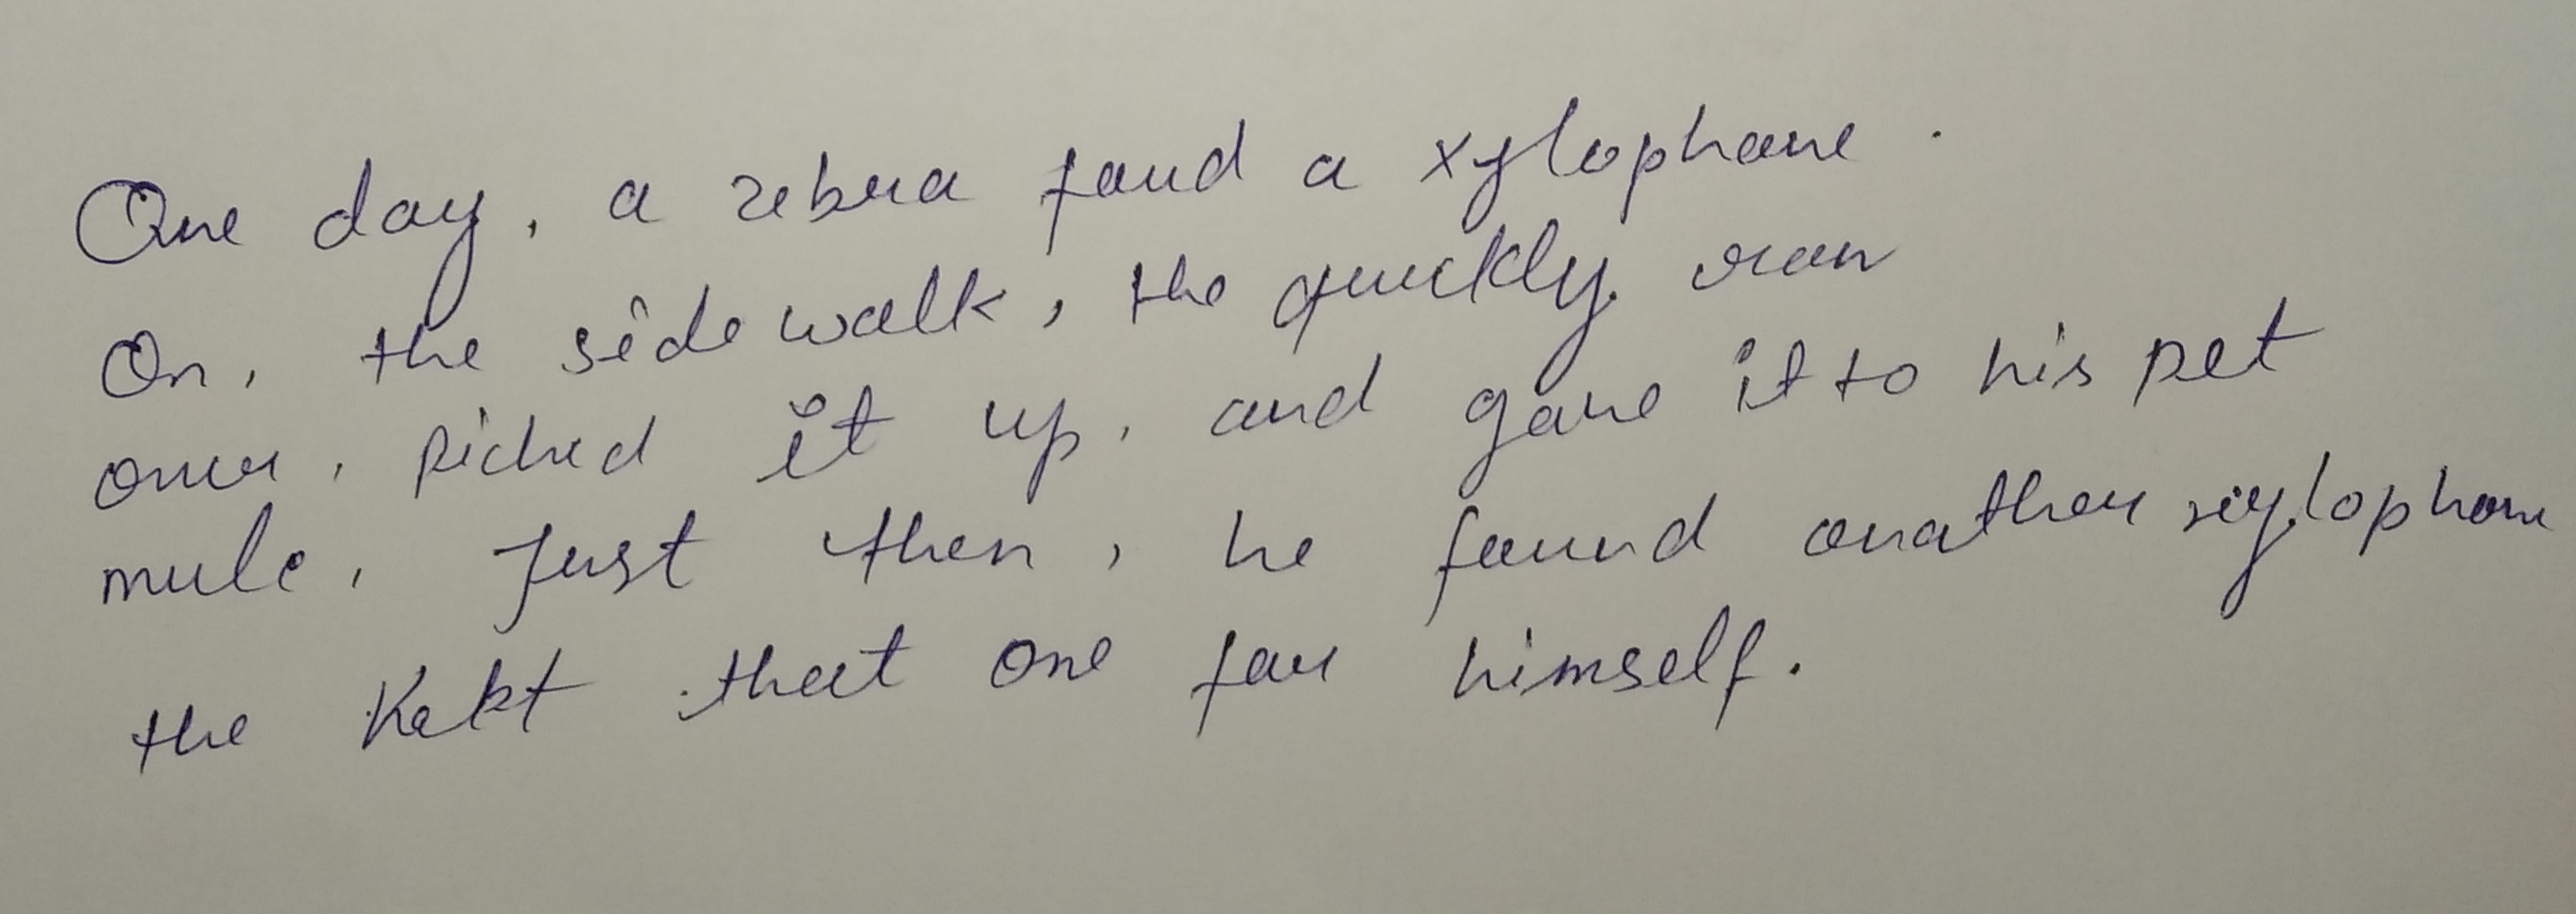 One day, a zebra faud a xylophone.
On, the sidewalk, the quickly ran
over, picked it up, and gave it to his pet
mule, Just then, he found another xylophone
the Kept that one for himself.